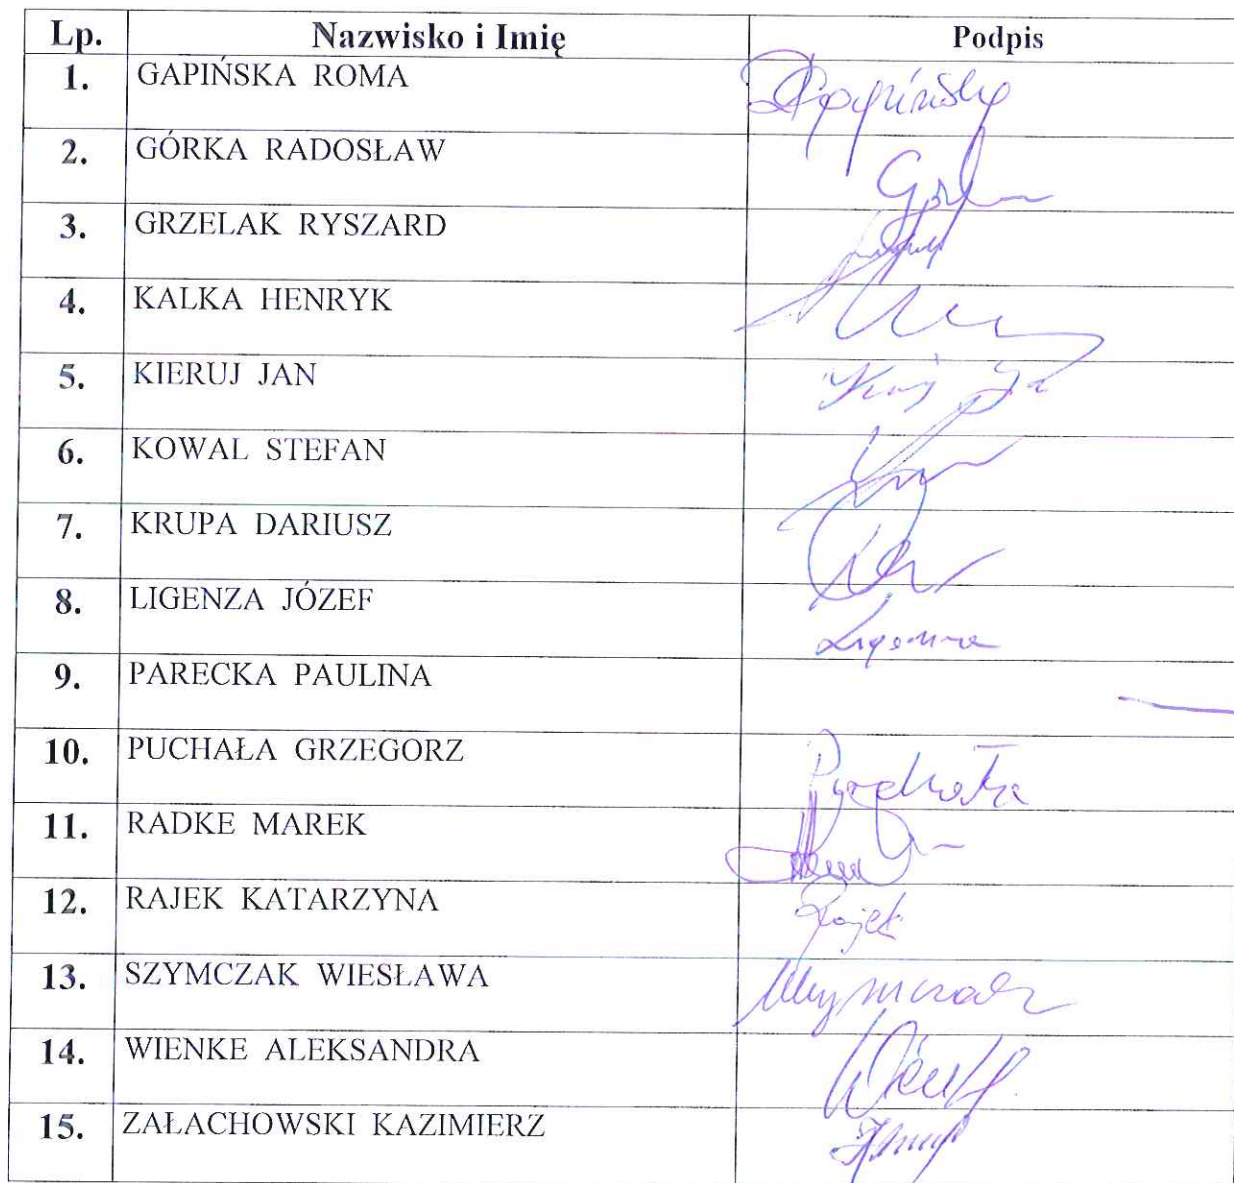 Lp. Nazwisko i Imię Podpis
1. GAPIŃSKA ROMA Gapińska
2. GÓRKA RADOSŁAW
3. GRZELAK RYSZARD
4. KALKA HENRYK
5. KIERUJ JAN
6. KOWAL STEFAN
7. KRUPA DARIUSZ
8. LIGENZA JÓZEF
9. PARECKA PAULINA
10. PUCHAŁA GRZEGORZ Puchała
11. RADKE MAREK
12. RAJEK KATARZYNA Rajek
13. SZYMCZAK WIESŁAWA
14. WIENKE ALEKSANDRA
15. ZAŁACHOWSKI KAZIMIERZ